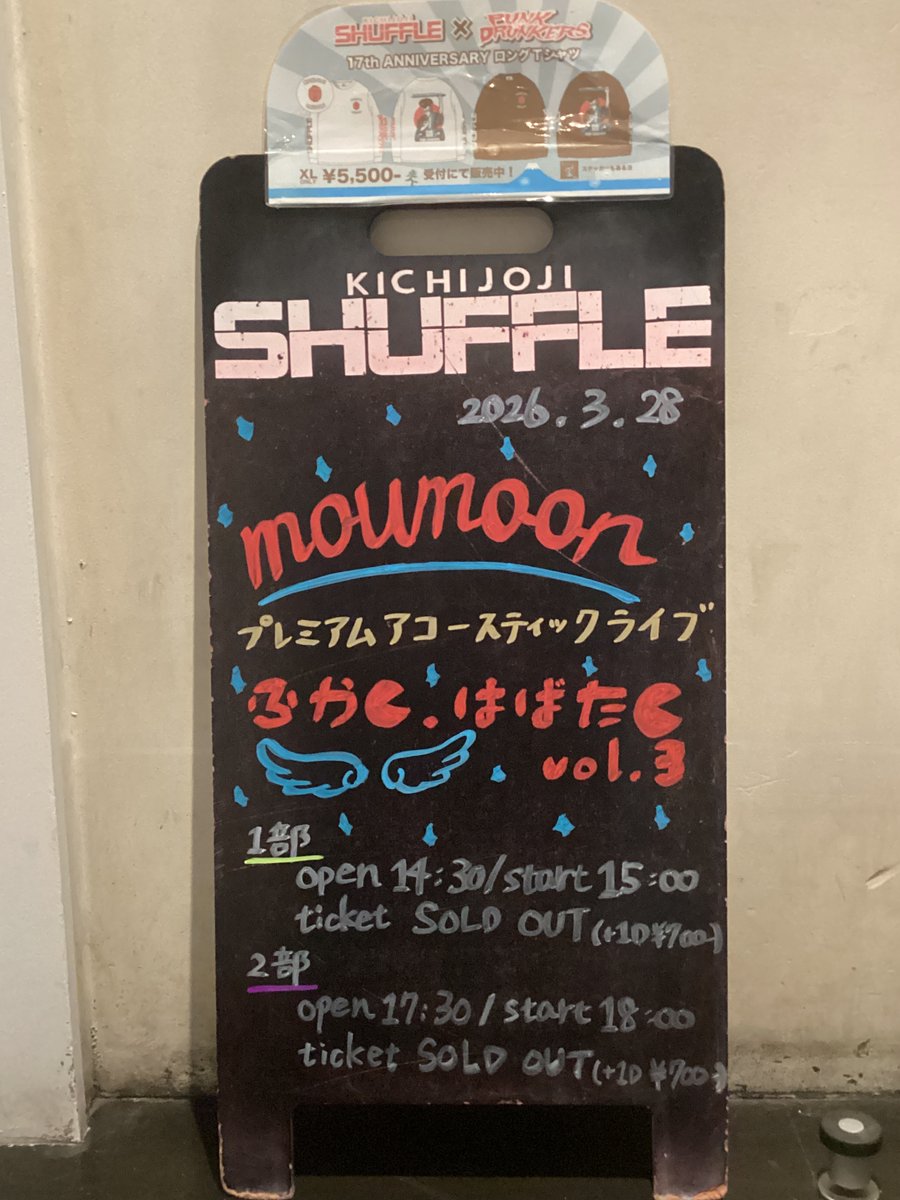 KICHIJOJI
SHUFFLE × PUNK DRUNKERS
17th ANNIVERSARY ロングTシャツ
XL ONLY ¥5,500- 受付にて販売中!
KICHIJOJI
SHUFFLE
2026.3.28
moumoon
プレミアムアコースティックライブ
ふかく.はばたく
vol.3
1部
open 14:30/start 15:00
ticket SOLD OUT (+1D¥700-)
2部
open 17:30/start 18:00
ticket SOLD OUT (+1D ¥700-)